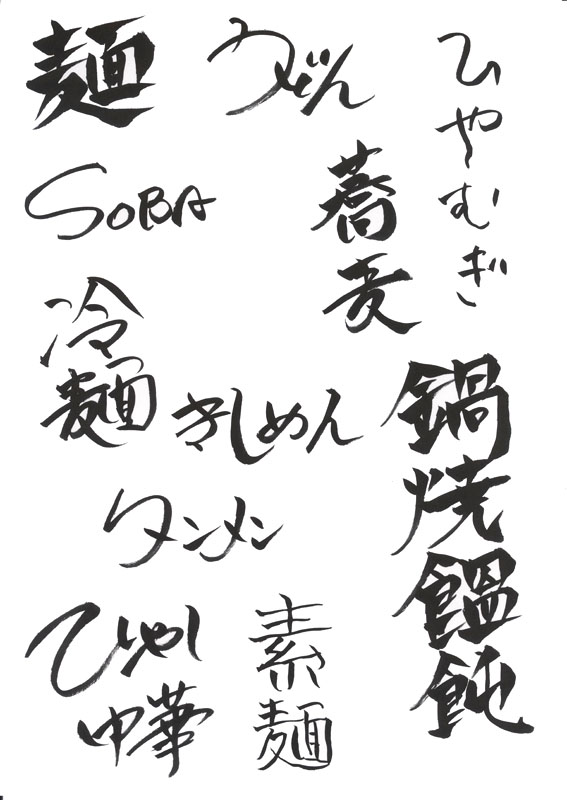 麺
うどん
ひやむぎ
SOBA
蕎麦
冷麺
きしめん
鍋焼饂飩
タンメン
ひやし
中華
素麺